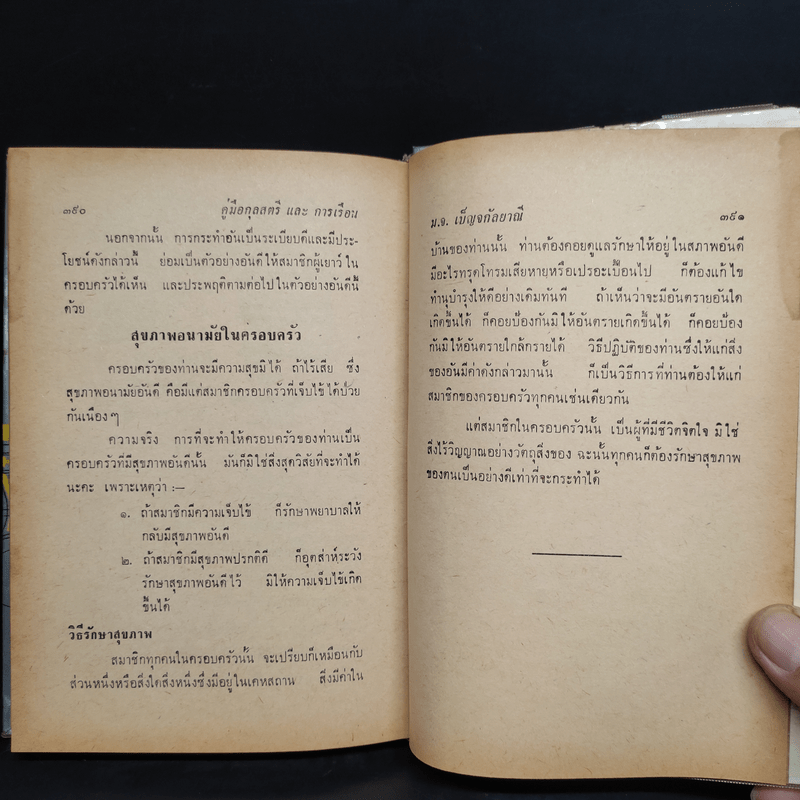 ๓๙๐ คู่มือกุลสตรี และ การเรือน
นอกจากนั้น การกระทำอันเป็นระเบียบดีและมีประ-
โยชน์ดังกล่าวนี้ ย่อมเป็นตัวอย่างอันดีให้สมาชิกผู้เยาว์ใน
ครอบครัวได้เห็น และประพฤติตามต่อไปในตัวอย่างอันดีนี้
ด้วย
สุขภาพอนามัยในครอบครัว
ครอบครัวของท่านจะมีความสุขมิได้ ถ้าไร้เสีย ซึ่ง
สุขภาพอนามัยอันดี คือมีแต่สมาชิกครอบครัวที่เจ็บไข้ได้ป่วย
กันเนืองๆ
ความจริง การที่จะทำให้ครอบครัวของท่านเป็น
ครอบครัวที่มีสุขภาพอันดีนั้น มันก็มิใช่สิ่งสุดวิสัยที่จะทำได้
นะคะ เพราะเหตุว่า :—
๑. ถ้าสมาชิกมีความเจ็บไข้ ก็รักษาพยาบาลให้
กลับมีสุขภาพอันดี
๒. ถ้าสมาชิกมีสุขภาพปรกติดี ก็อุตส่าห์ระวัง
รักษาสุขภาพอันดีไว้ มิให้ความเจ็บไข้เกิด
ขึ้นได้
วิธีรักษาสุขภาพ
สมาชิกทุกคนในครอบครัวนั้น จะเปรียบก็เหมือนกับ
ส่วนหนึ่งหรือสิ่งใดสิ่งหนึ่งซึ่งมีอยู่ในเคหสถาน สิ่งมีค่าใน
ม.จ. เบ็ญจกัลยาณี ๓๙๑
บ้านของท่านนั้น ท่านต้องคอยดูแลรักษาให้อยู่ในสภาพอันดี
มีอะไรทรุดโทรมเสียหายหรือเปรอะเปื้อนไป ก็ต้องแก้ไข
ทำนุบำรุงให้ดีอย่างเดิมทันที ถ้าเห็นว่าจะมีอันตรายอันใด
เกิดขึ้นได้ ก็คอยป้องกันมิให้อันตรายเกิดขึ้นได้ ก็คอยป้อง
กันมิให้อันตรายใกล้กรายได้ วิธีปฏิบัติของท่านซึ่งให้แก่สิ่ง
ของอันมีค่าดังกล่าวมานั้น ก็เป็นวิธีการที่ท่านต้องให้แก่
สมาชิกของครอบครัวทุกคนเช่นเดียวกัน
แต่สมาชิกในครอบครัวนั้น เป็นผู้ที่มีชีวิตจิตใจ มิใช่
สิ่งไร้วิญญาณอย่างวัตถุสิ่งของ ฉะนั้นทุกคนก็ต้องรักษาสุขภาพ
ของตนเป็นอย่างดีเท่าที่จะกระทำได้